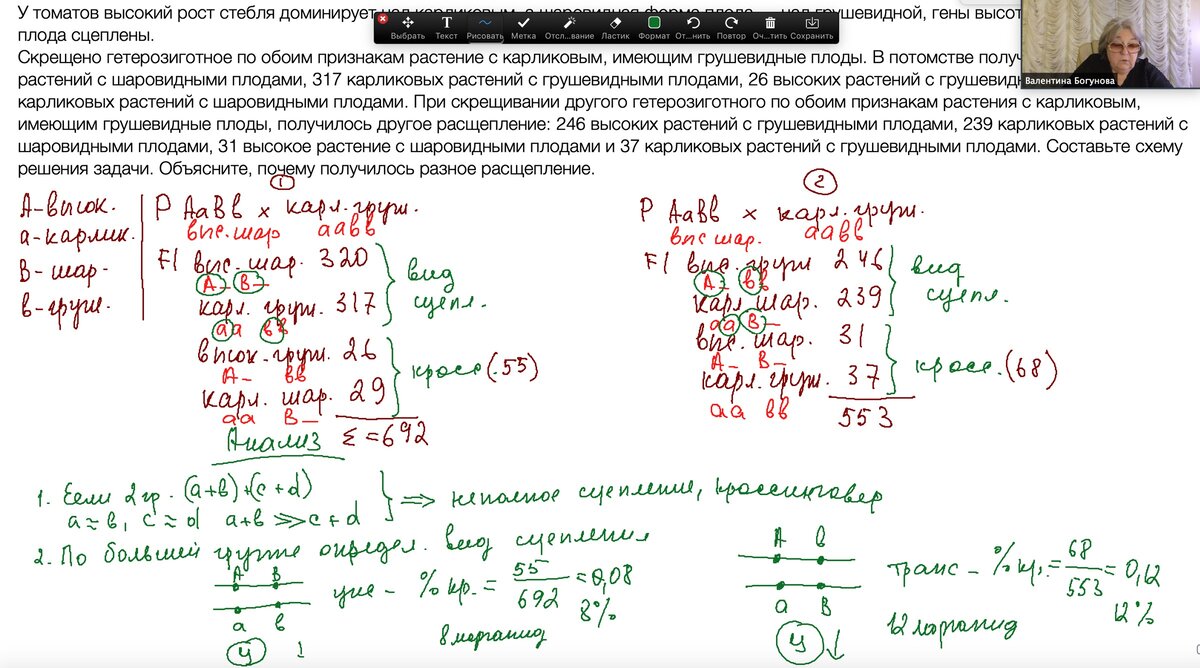 У томатов высокий рост стебля доминирует над карликовым, а шаровидная форма плода — над грушевидной, гены высот
плода сцеплены.
Выбрать Текст Рисовать Метка Отсл...вание Ластик Формат От...нить Повтор Оч...тить Сохранить
Валентина Богунова
Скрещено гетерозиготное по обоим признакам растение с карликовым, имеющим грушевидные плоды. В потомстве полу
растений с шаровидными плодами, 317 карликовых растений с грушевидными плодами, 26 высоких растений с грушевидн
карликовых растений с шаровидными плодами. При скрещивании другого гетерозиготного по обоим признакам растения с карликовым,
имеющим грушевидные плоды, получилось другое расщепление: 246 высоких растений с грушевидными плодами, 239 карликовых растений с
шаровидными плодами, 31 высокое растение с шаровидными плодами и 37 карликовых растений с грушевидными плодами. Составьте схему
решения задачи. Объясните, почему получилось разное расщепление.
А-высок.
а-карлик.
В-шар-
в-груш.
1
Р АаВв х карл.груш.
выс.шар аавв
F1 выс.шар. 320
А- В-
карл. груш. 317
аа вв
вид
сцепл.
высок.груш. 26
А- вв
карл. шар. 29
аа В-
кросс(.55)
Σ=692
2
Р АаВв х карл.груш.
выс шар. аавв
F1 выс.груш 246
А- вв
карл.шар. 239
аа В-
вид
сцепл.
выс.шар. 31
А- В-
карл.груш. 37
аа вв
кросс.(68)
553
Анализ
1. Если 2гр. (а+в)+(с+d)
а≈в, с≈d а+в >> с+d
=> неполное сцепление, кроссинговер
2. По большей группе определ. вид сцепления
А В
а в
цис - % кр. = 55/692 = 0,08
8%
8 морганид
Ц ↓
А в
а В
транс - % кр. = 68/553 = 0,12
12%
12 морганид
Ц ↓